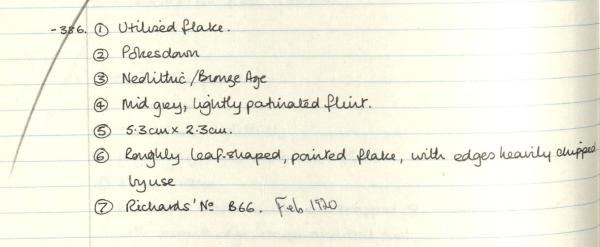 -386. ① Utilised flake.
② Pokesdown
③ Neolithic/Bronze Age
④ Mid grey, lightly patinated flint.
⑤ 5.3cm x 2.3cm.
⑥ Roughly leaf-shaped, pointed flake, with edges heavily chipped
by use
⑦ Richards' No B66. Feb 1920